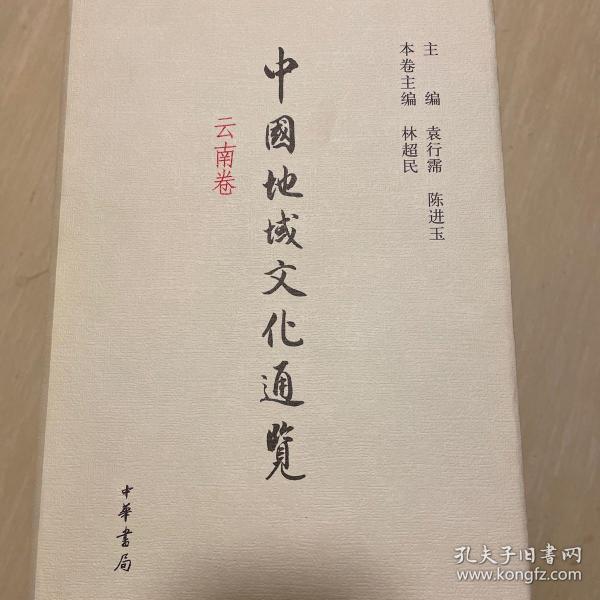 主 编 袁行霈 陈进玉
本卷主编 林超民
中國地域文化通覽
云南卷
中華書局
孔夫子旧书网
www.kongfz.com